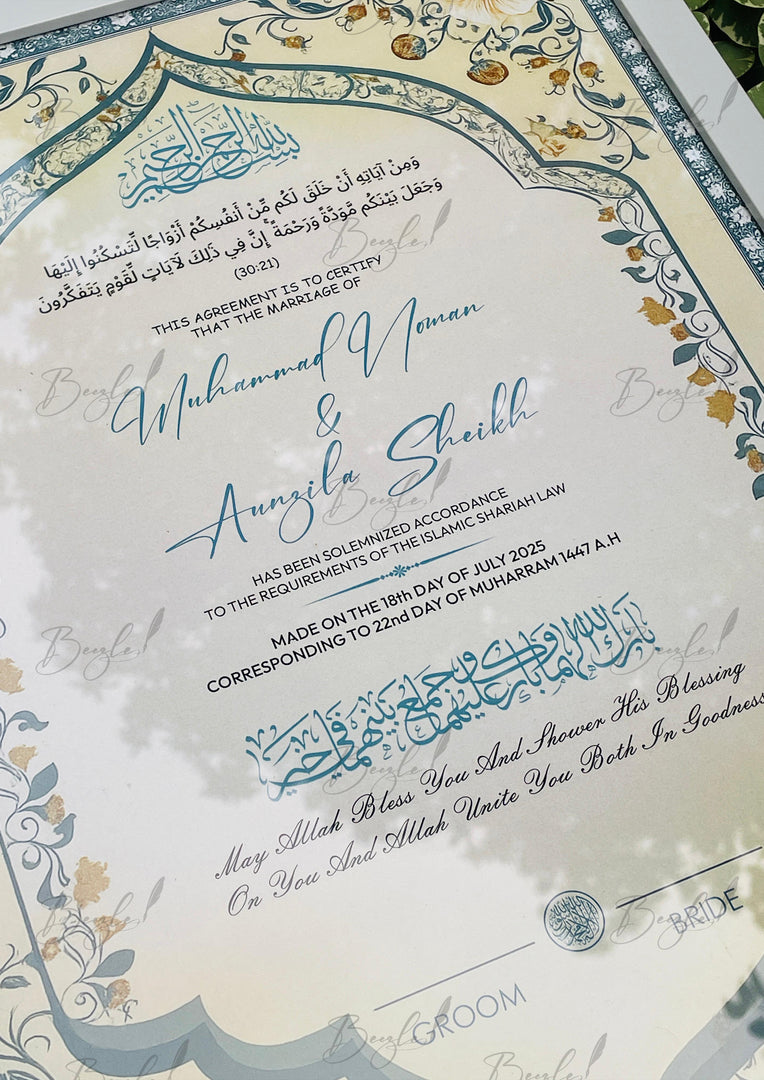 بسم الله الرحمن الرحيم
وَمِنْ آيَاتِهِ أَنْ خَلَقَ لَكُم مِّنْ أَنفُسِكُمْ أَزْوَاجًا لِّتَسْكُنُوا إِلَيْهَا
وَجَعَلَ بَيْنَكُم مَّوَدَّةً وَرَحْمَةً ۚ إِنَّ فِي ذَٰلِكَ لَآيَاتٍ لِّقَوْمٍ يَتَفَكَّرُونَ
(30:21)
THIS AGREEMENT IS TO CERTIFY
THAT THE MARRIAGE OF
Muhammad Noman
&
Aunzila Sheikh
HAS BEEN SOLEMNIZED ACCORDANCE
TO THE REQUIREMENTS OF THE ISLAMIC SHARIAH LAW
MADE ON THE 18th DAY OF JULY 2025
CORRESPONDING TO 22nd DAY OF MUHARRAM 1447 A.H
بارك الله لهما وبارك عليهما وجمع بينهما في خير
May Allah Bless You And Shower His Blessing
On You And Allah Unite You Both In Goodness
BRIDE
GROOM
Beezle